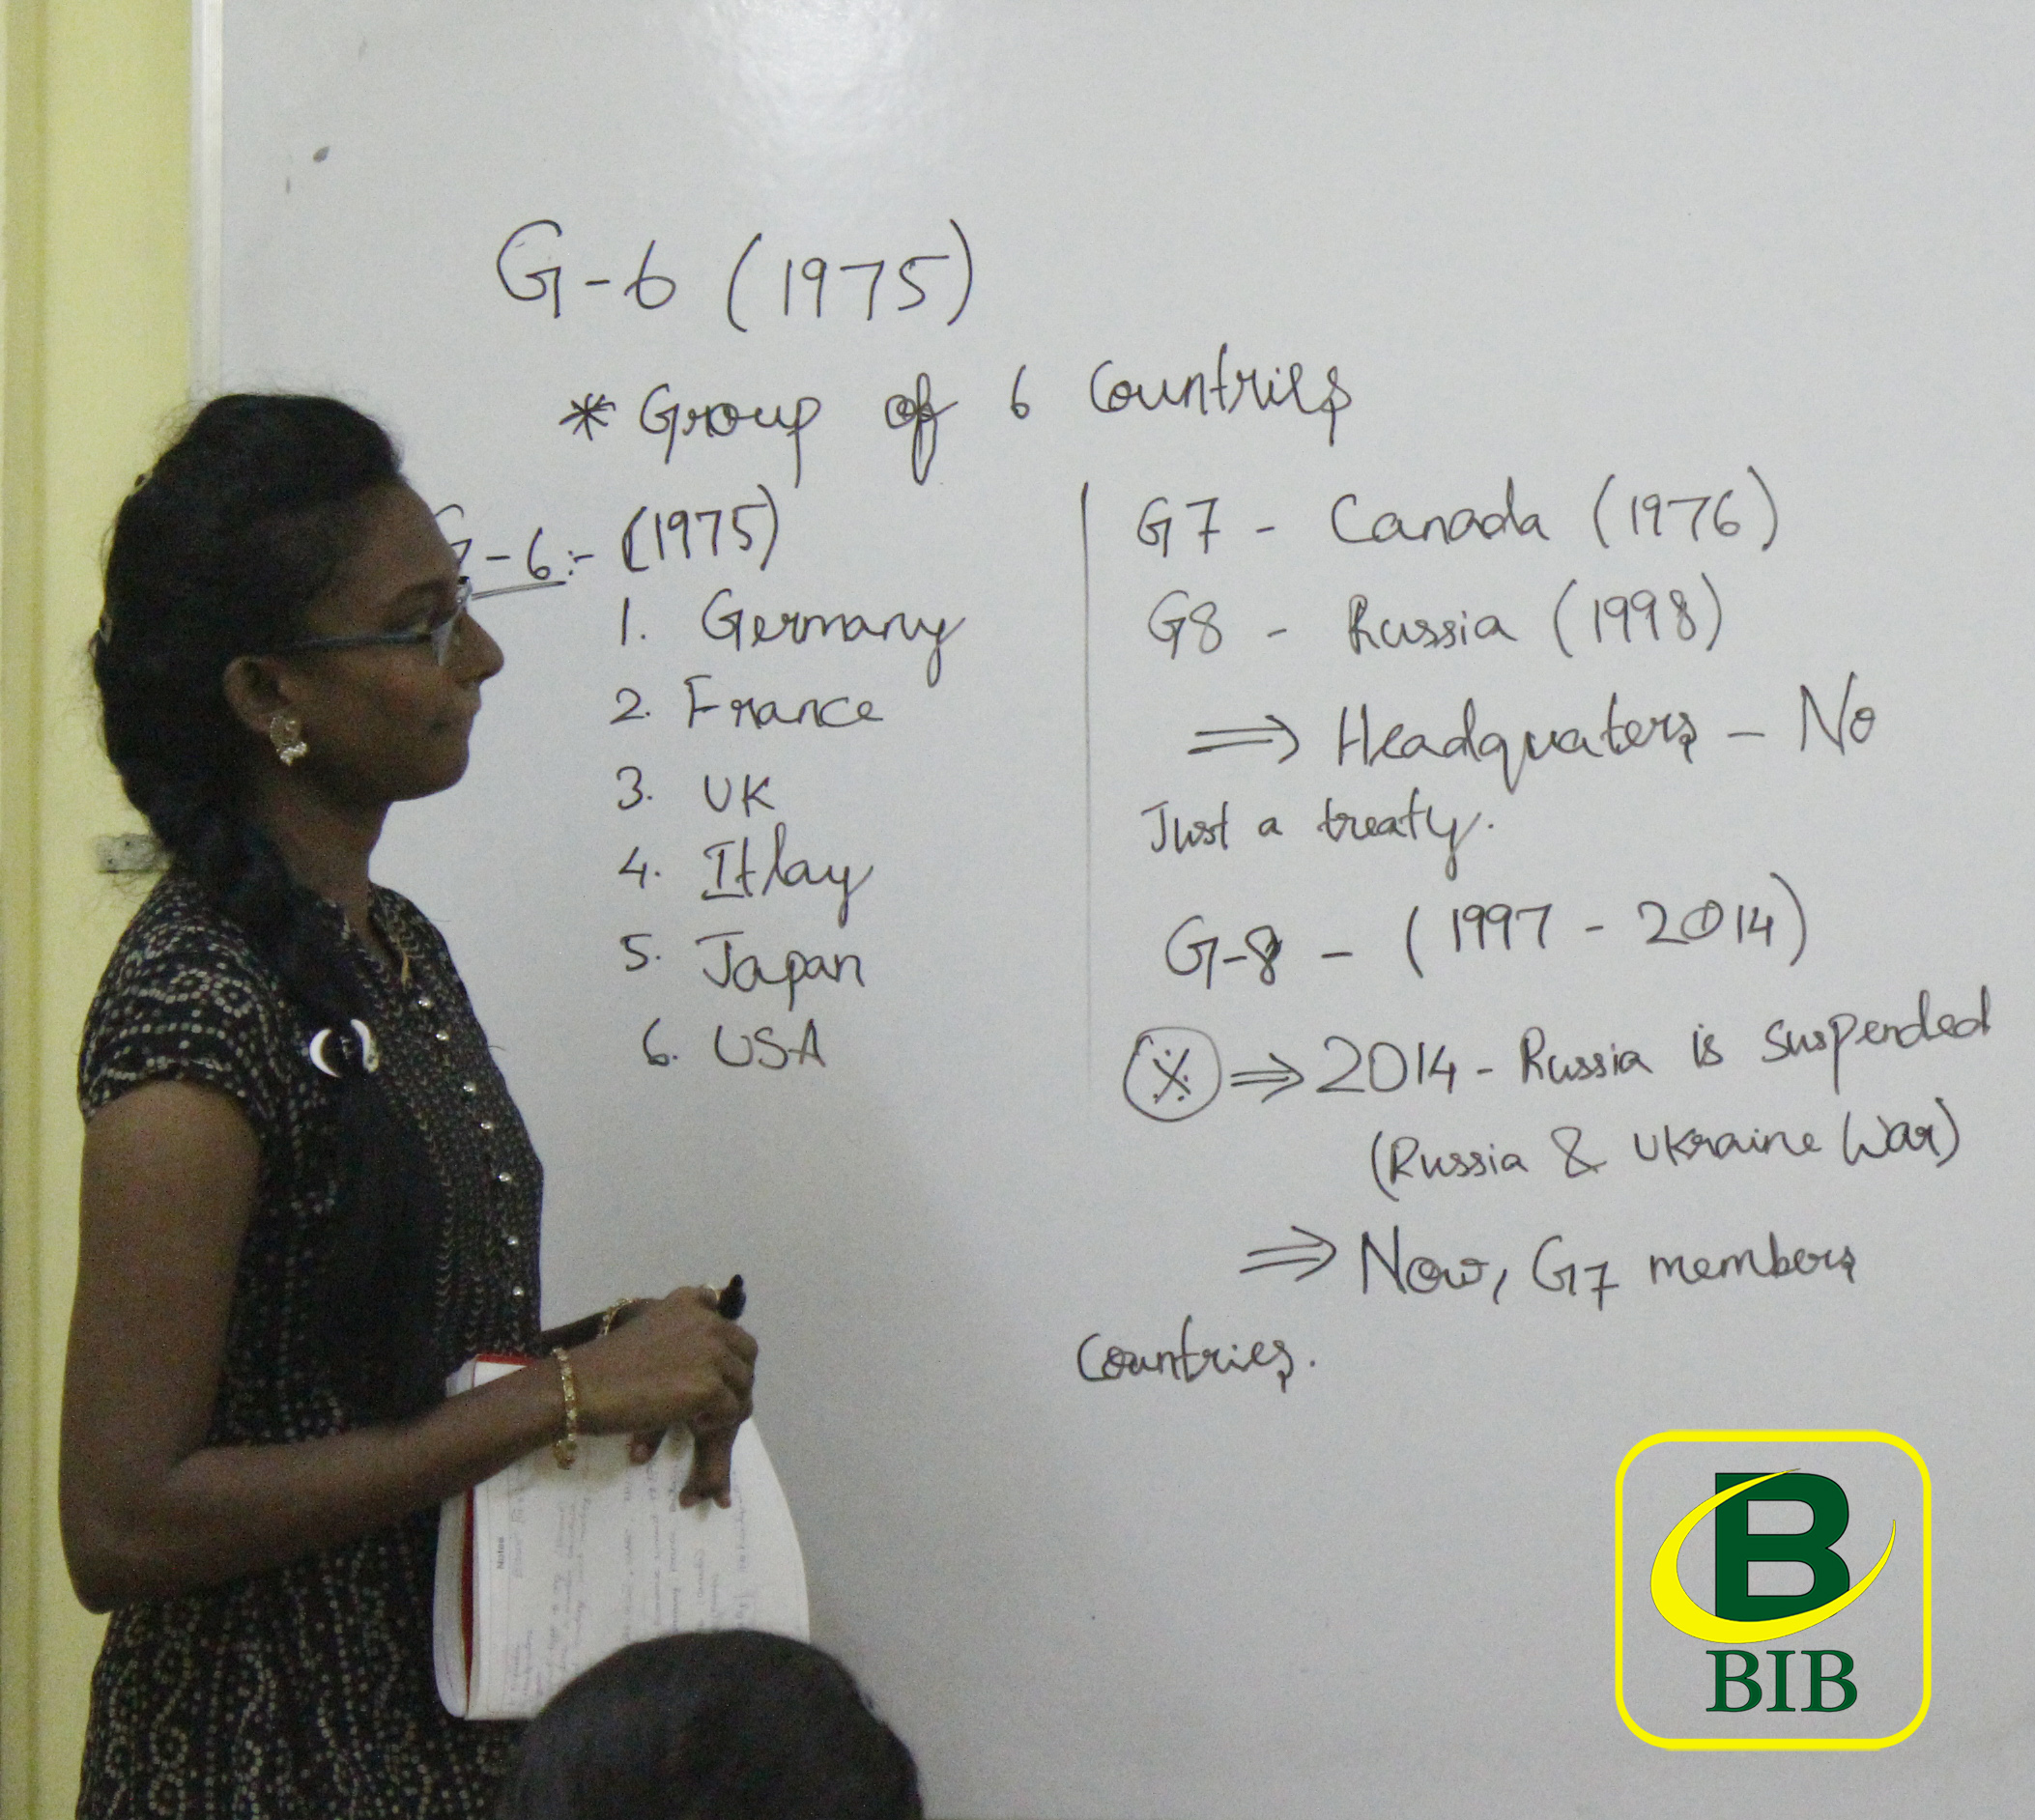 G-6 (1975)
* Group of 6 Countries
G-6:- (1975)
1. Germany
2. France
3. UK
4. Itlay
5. Japan
6. USA
G7 - Canada (1976)
G8 - Russia (1998)
⇒ Headquaters - No
Just a treaty.
G-8 - (1997 - 2014)
※ ⇒ 2014 - Russia is suspended
(Russia & Ukraine War)
⇒ Now, G7 members
Countries.
Notes
B
BIB